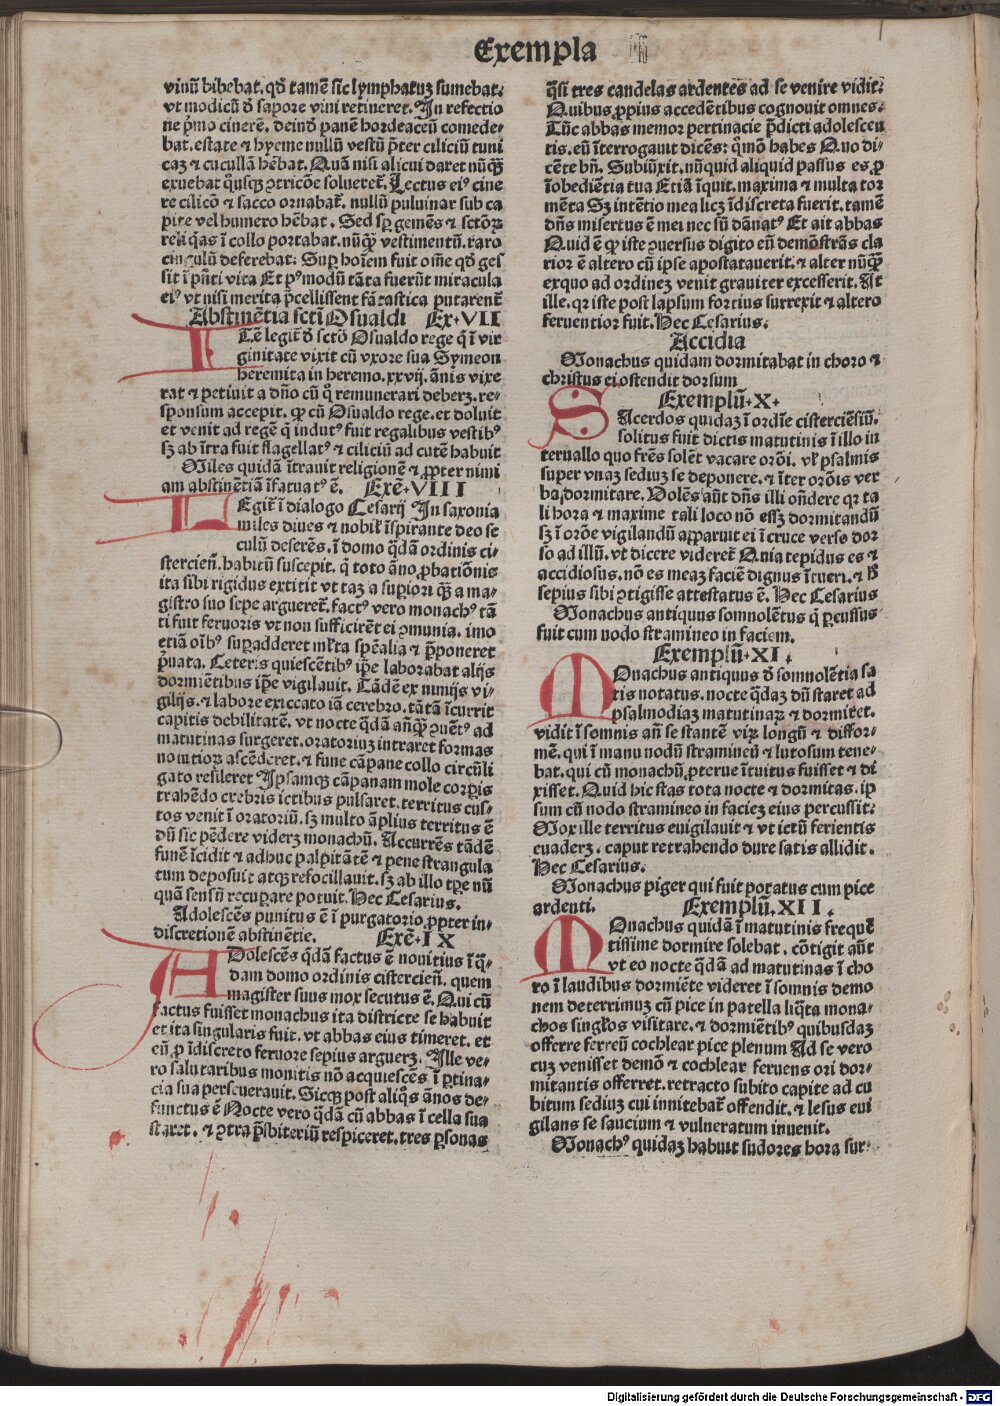 Exempla
vinū bibebat. qđ tamē sic lymphatuȝ sumebat.
vt modicū đ sapore vini retineret. In refectio
ne pͥmo cinerē. deinđ panē hordeaceū comede-
bat. estate ⁊ hyeme nullū vestū p̄ter ciliciū tuni
caȝ ⁊ cucullā hēbat. Quā nisi alicui daret nūqꝫ
exuebat qͦusqꝫ ꝯtricōe soluereť. Lectus eiꝰ cine
re cilicō ⁊ sacco ornabať. nullū puluinar sub ca
pite vel humero hēbat. Sed sꝑ gemēs ⁊ sctōꝝ
reliqͥas ī collo portabat. nūqꝫ vestimentū. raro
cingulū deferebat. Suꝑ hoīem fuit oīne qđ ges
sit ī pn̄ti vita Et pꝰmodū tāta fuerūt miracula
eiꝰ vt nisi merita p̄cellissent fātastica putarenť
Abstinētia scti Osualdi Ex. VII
ITē legiť đ sctō Osualdo rege qͥ ī vir
ginitate vixit cū vxore sua Symeon
heremita in heremo. xxvij. ānis vixe
rat ⁊ petiuit a dn̄o cū qͦ remunerari deberȝ. re-
sponsum accepit. ꝙ cū Osualdo rege. et doluit
et venit ad regē qͥ indutꝰ fuit regalibus vestibꝰ
sȝ ab ītra fuit flagellatꝰ ⁊ ciliciū ad cutē habuit
Miles quidā ītrauit religionē ⁊ ꝓpter nimi
am abstinētiā īfatuatꝰ ē. Exē. VIII
LEgiť ī dialogo Cesarij In saxonia
miles diues ⁊ nobilꝭ īspirante deo se
culū deserēs. ī domo qͣdā ordinis ci-
sterciēn. habitū suscepit. qͥ toto āno ꝓbatiōnis
ita sibi rigidus extitit vt taȝ a supͥori qꝫ a ma-
gistro suo sepe argueret. factꝰ vero monachꝰ tā
ti fuit feruoris vt non sufficirēt ei ꝯmunia. imo
etiā oībꝰ suꝑadderet mlꝉta spēalia ⁊ p̄poneret
pͥuata. Ceteris quiescētibꝰ ip̄e laborabat alijs
dormiētibus ip̄e vigilauit. Tādē ex nimijs vi-
gilijs. ⁊ labore exiccato iā cerebro. tātā īcurrit
capitis debilitatē. vt nocte qͣdā añqꝫ ꝯuētꝰ ad
matutinas surgeret. oratoriuȝ intraret formas
nouitioꝝ ascēderet. ⁊ fune cāpane collo circūli
gato resileret Ipsamqꝫ cāpanam mole corꝑis
trahēdo crebris ictibus pulsaret. territus cus-
tos venit ī oratoriū. sȝ multo āplius territus ē
dū sic pēdere viderȝ monachū. Accurrēs tādē
funē īcidit ⁊ adhuc palpitātē ⁊ pene strangula
tum deposuit atqꝫ refocillauit. sȝ ab illo tꝑe nū
quā sensū recuꝑare potuit. Hec Cesarius.
Adolescēs punitus ē ī purgatorio ꝓpter in-
discretionē abstinētie. Exē. IX
ADolescēs qͥdā factus ē nouitius ī qͣ-
dam domo ordinis cistercieñ. quem
magister suus mox secutus ē. Qui cū
factus fuisset monachus ita districte se habuit
et ita singularis fuit. vt abbas eius timeret. et
eū ꝓ īdiscreto feruore sepius arguerȝ. Ille ve-
ro salutaribus monitis nō acquiescēs ī ꝑtina-
cia sua perseuerauit. Sicqꝫ post aliqͦs ānos de-
functus ē Nocte vero qͣdā cū abbas ī cella sua
staret. ⁊ ꝯtra p̄sbiteriū respiceret. tres ꝑsonas
qͣsi tres candelas ardentes ad se venire vidit.
Quibus ꝓpius accedētibus cognouit omnes.
Tūc abbas memor pertinacie p̄dicti adolescen
tis. eū īterrogauit dicēs: qͦmō habes Quo di-
cēte bñ. Subiūxit. nūquid aliquid passus es ꝓ
īobediētia tua Etiā īquit. maxima ⁊ multa tor
mēta Sȝ intētio mea licȝ īdiscreta fuerit. tamē
dn̄s misertus ē mei nec sū dānatꝰ Et ait abbas
Quid ē ꝙ iste ꝯuersus digito eū demōstrās cla
rior ē altero cū ipse apostatauerit. ⁊ alter nūqꝫ
exquo ad ordineȝ venit grauiter excesserit. At
ille. qꝛ iste post lapsum fortius surrexit ⁊ altero
feruentior fuit. Hec Cesarius.
Accidia
Monachus quidam dormitabat in choro ⁊
christus ei ostendit dorsum
Exemplū. X.
SAcerdos quidaȝ ī ordīe cisterciēsiū.
solitus fuit dictis matutinis ī illo in
teruallo quo frēs solēt vacare orōi. vꝉ psalmis
super vnaȝ sediuȝ se deponere. ⁊ īter orōis ver
ba dormitare. Volēs aūt dn̄s illi on̄dere qꝛ ta
li hora ⁊ maxime tali loco nō essȝ dormitandū
sȝ ī orōe vigilandū apparuit ei ī cruce verso dor
so ad illū. vt dicere videreť Quia tepidus es ⁊
accidiosus. nō es meaȝ faciē dignus ītueri. ⁊ ħ
sepius sibi ꝯtigisse attestatus ē. Hec Cesarius
Monachus antiquus somnolētus qͥ ꝑcussus
fuit cum nodo stramineo in faciem.
Exemplū. XI.
MOnachus antiquus đ somnolētia sa
tis notatus. nocte qͣdaȝ dū staret ad
psalmodiaȝ matutinaꝝ ⁊ dormitet.
vidit ī somnis añ se stantē viꝝ longū ⁊ diffor-
mē. qui ī manu nodū stramineū ⁊ lutosum tene-
bat. qui cū monachū ꝓterue ītuitus fuisset ⁊ di
xisset. Quid hic stas tota nocte ⁊ dormitas. ip
sum cū nodo stramineo in facieȝ eius percussit.
Mox ille territus euigilauit ⁊ vt ictū ferientis
euaderȝ. caput retrahendo dure satis allidit.
Hec Cesarius.
Monachus piger qui fuit potatus cum pice
ardenti. Exemplū. XII.
MOnachus quidā ī matutinis frequē
tissime dormire solebat. cōtigit aūt
vt eo nocte qͣdā ad matutinas ī cho
ro ī laudibus dormiēte videret ī somnis demo
nem deterrimuȝ cū pice in patella liqͣta mona-
chos singꝉos visitare. ⁊ dormiētibꝰ quibusdaȝ
offerre ferreū cochlear pice plenum Ad se vero
cuȝ venisset demō ⁊ cochlear feruens ori dor-
mitantis offerret. retracto subito capite ad cu
bitum sediuȝ cui innitebať offendit. ⁊ lesus eui
gilans se saucium ⁊ vulneratum inuenit.
Monachꝰ quidaȝ habuit sudores hora sur-
Digitalisierung gefördert durch die Deutsche Forschungsgemeinschaft - DFG